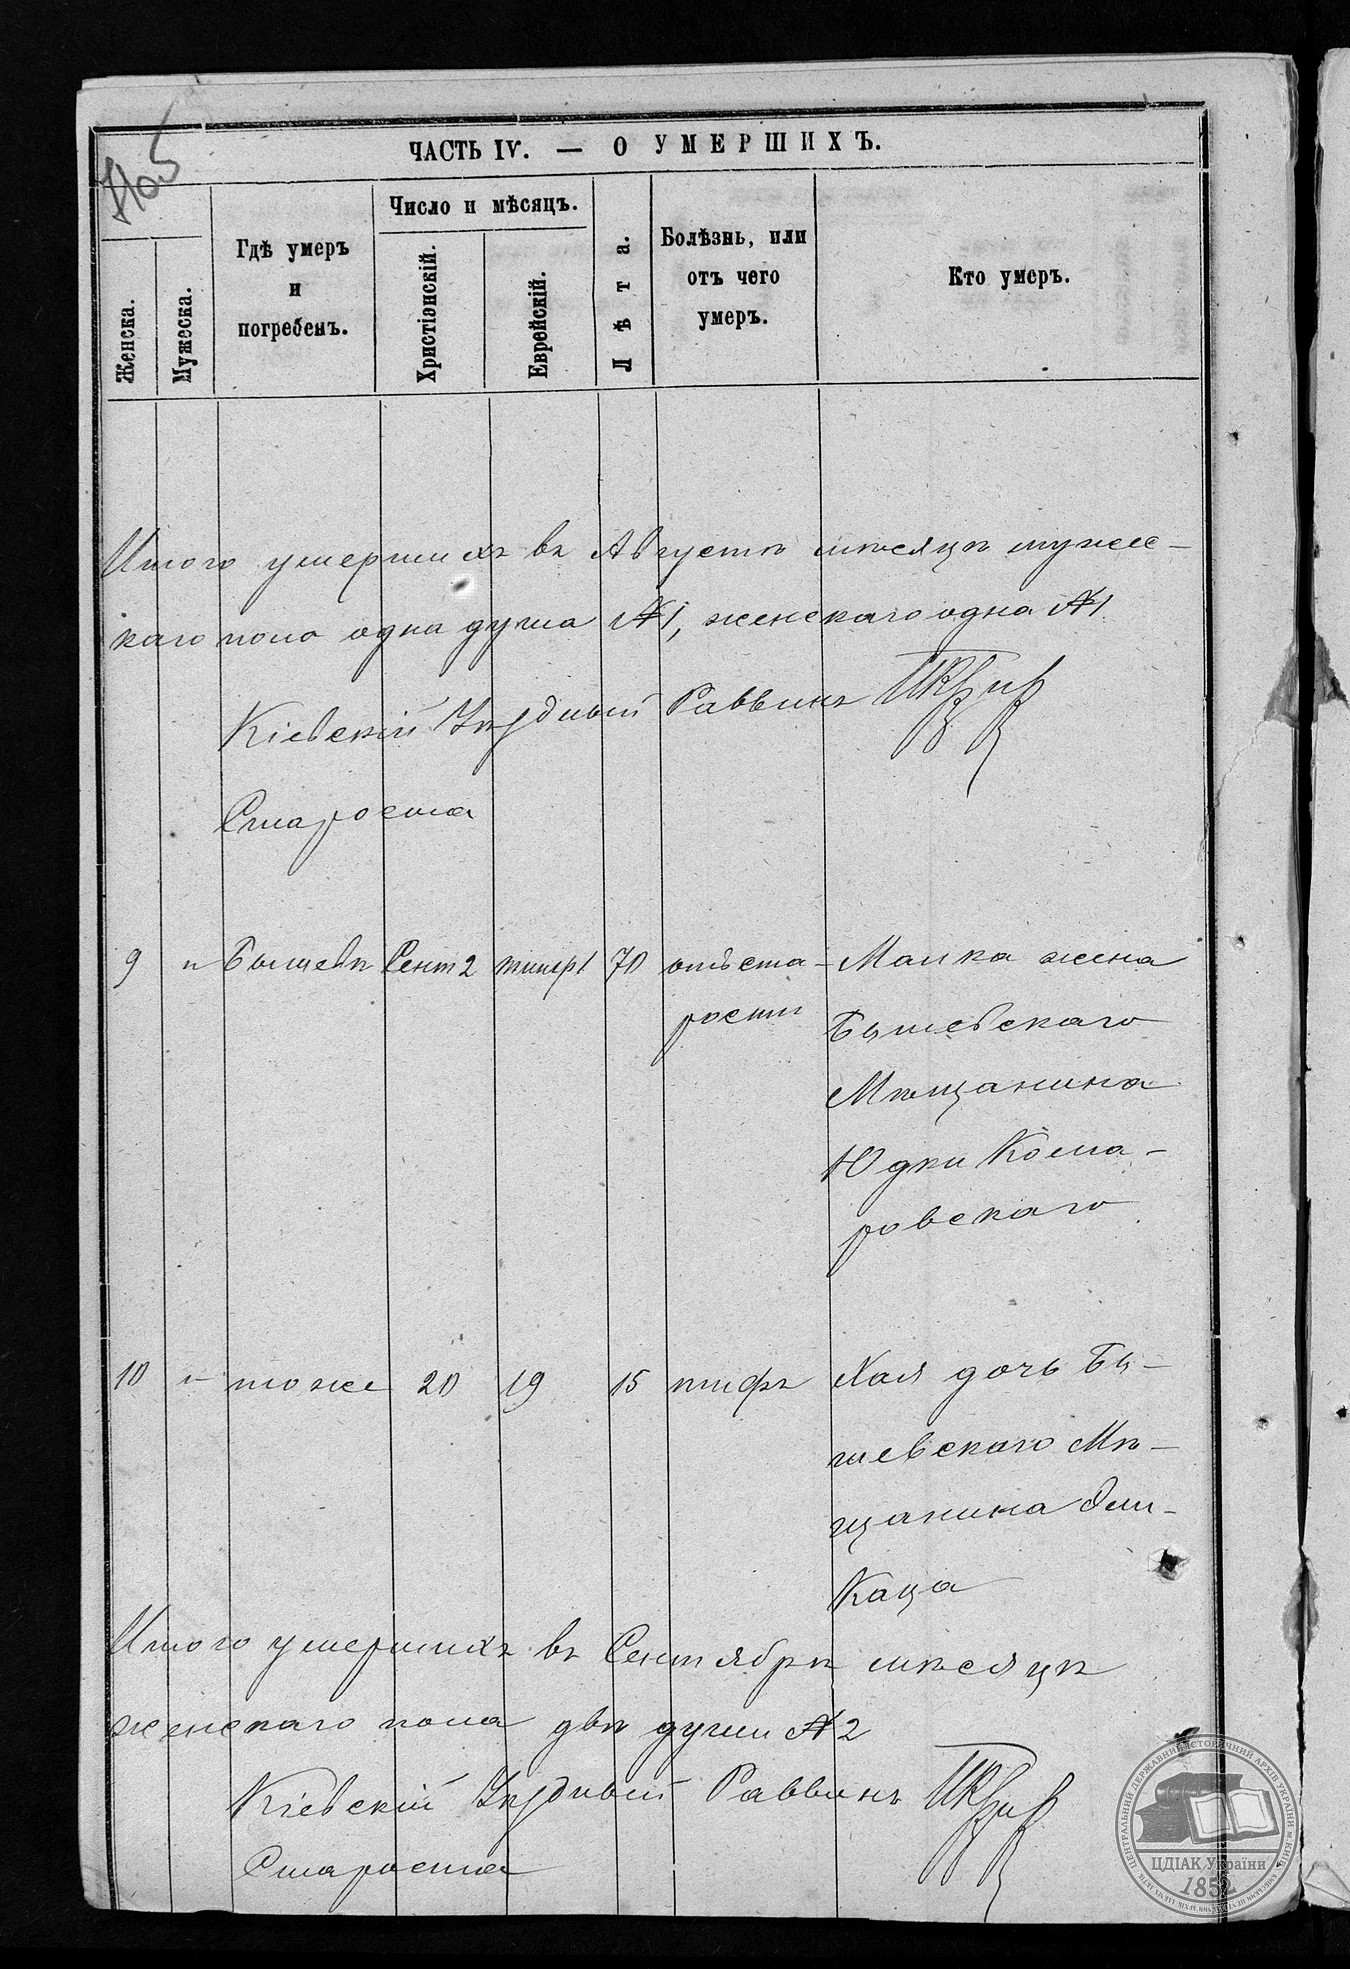 ЧАСТЬ IV. — О УМЕРШИХЪ.
Женска.
Мужеска.
Гдѣ умеръ
и
погребенъ.
Число и мѣсяцъ.
Христіэнскій.
Еврейскій.
Лѣта.
Болѣзнь, или
отъ чего
умеръ.
Кто умеръ.
Итого умершихъ въ Августѣ мѣсяцѣ мужес-
каго пола одна душа №1, женскаго одна №1
Кіевскій Уѣздный Раввинъ
Староста
9 " Бышевѣ Сент 2 70 отъ ста- Малка жена
рости Бышевскаго
Мѣщанина
Юдки Кома-
ровскаго
10 " тоже 20 19 15 тифъ Хая дочь Бы-
шевскаго Мѣ-
щанина
Каца
Итого умершихъ въ Сентябрѣ мѣсяцѣ
женскаго пола двѣ души №2
Кіевскій Уѣздный Раввинъ
Староста
ЦЕНТРАЛЬНИЙ ДЕРЖАВНИЙ ІСТОРИЧНИЙ АРХІВ УКРАЇНИ м. КИЇВ
ЦДІАК України
1852